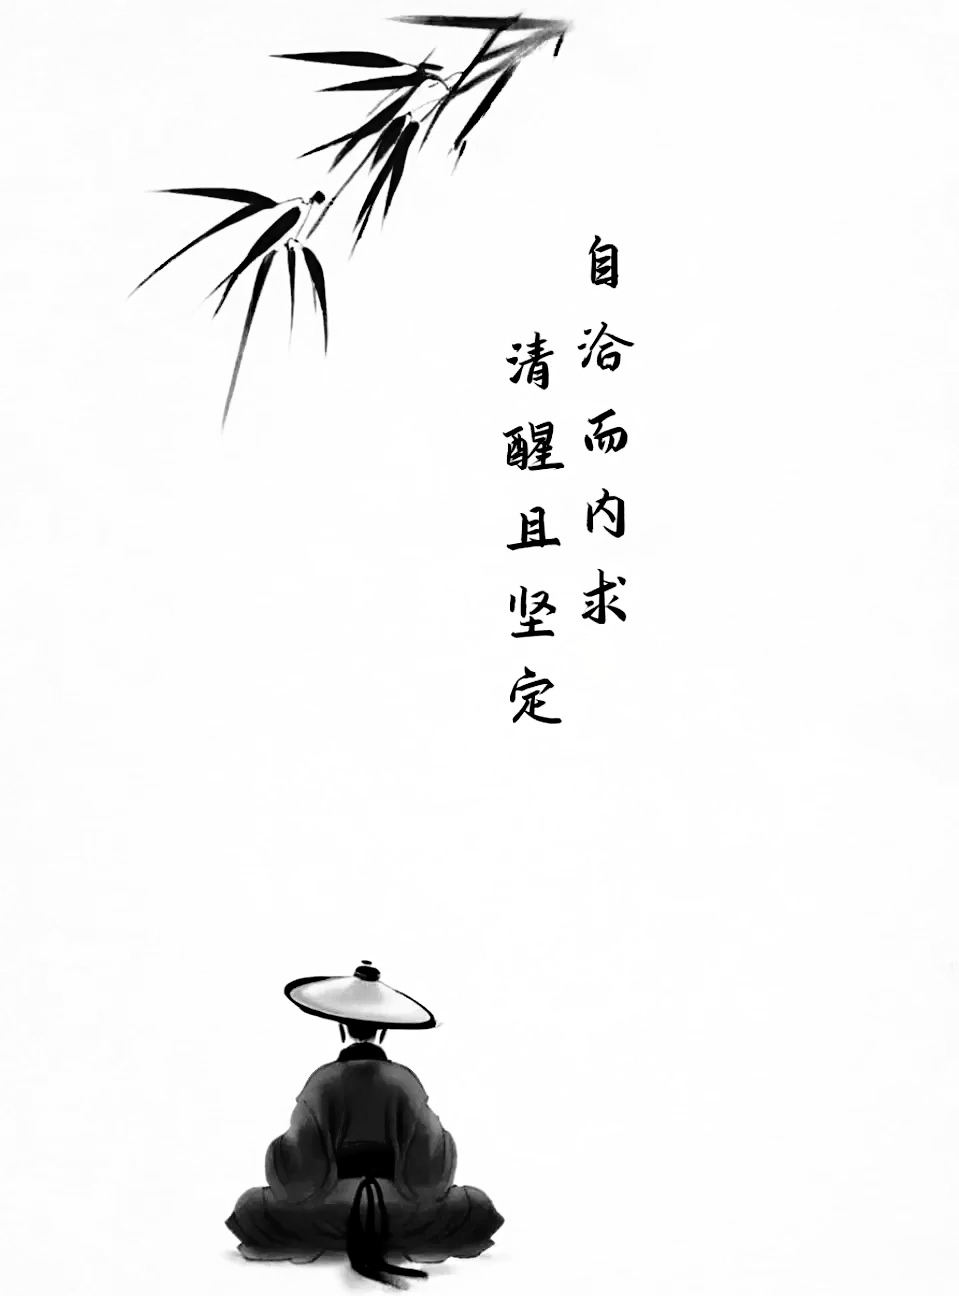 自洽而内求
清醒且坚定